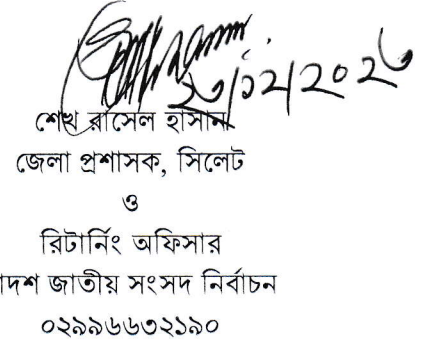 ২৩/১২/২০২৩
শেখ রাসেল হাসান
জেলা প্রশাসক, সিলেট
ও
রিটার্নিং অফিসার
াদশ জাতীয় সংসদ নির্বাচন
০২৯৯৬৬৩২১৯০